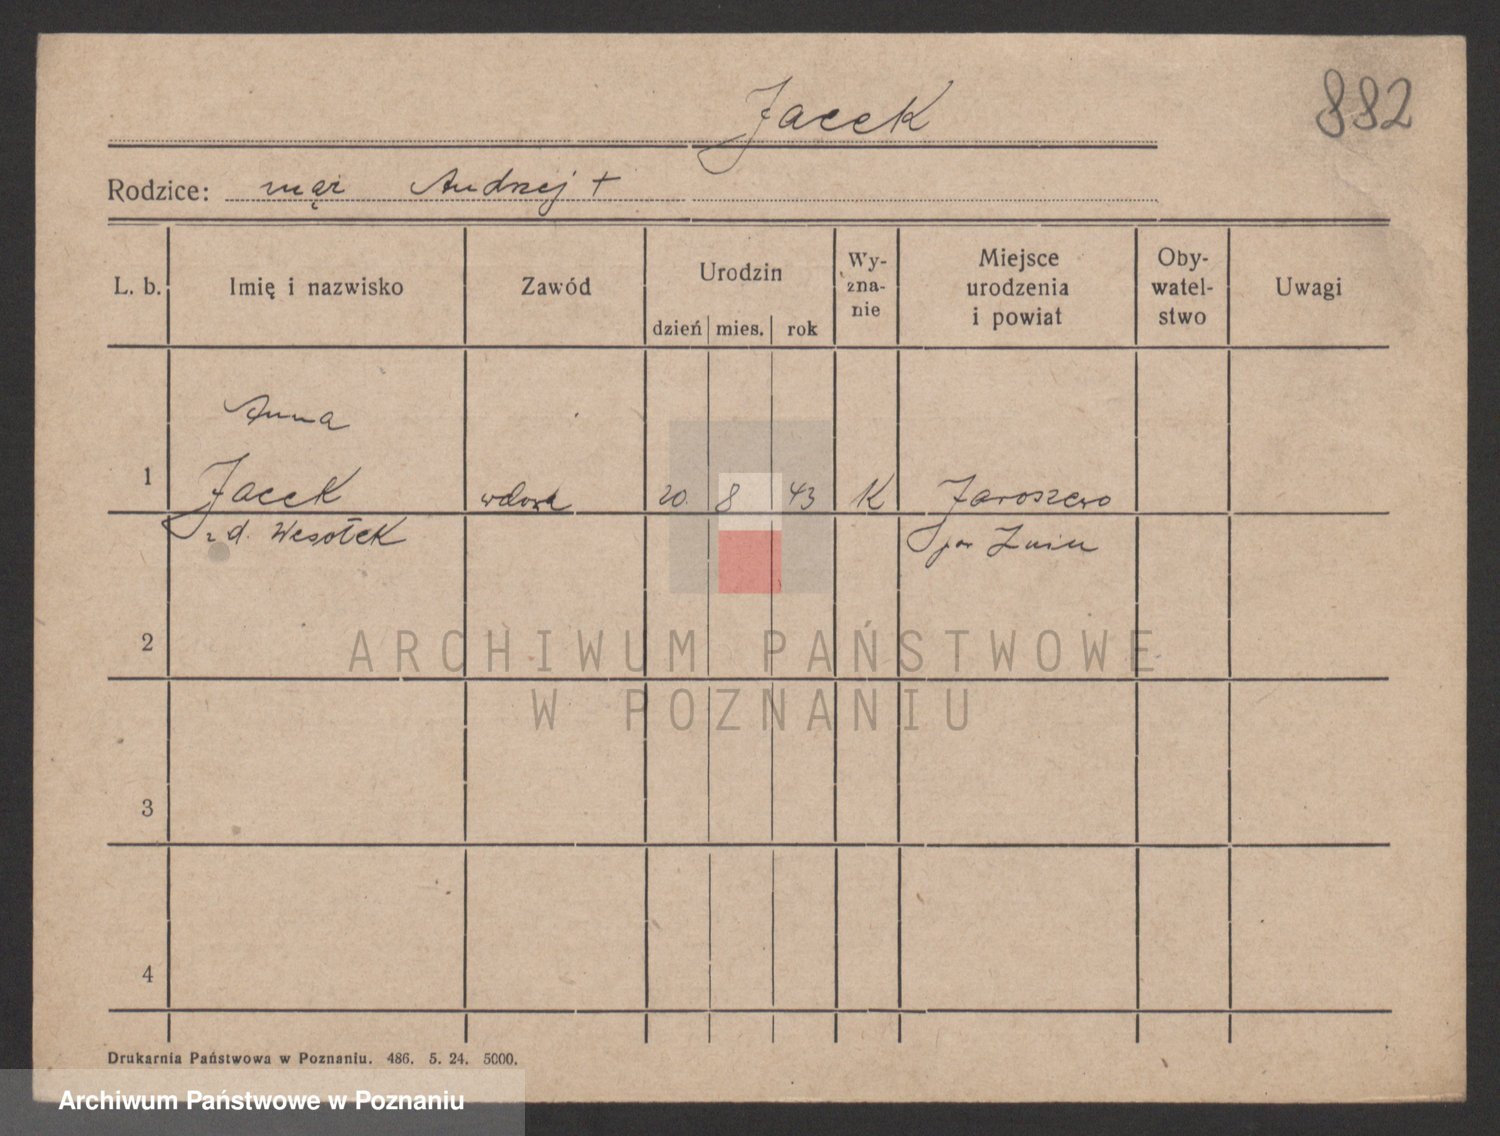 882
Jacek
Rodzice: mąż Andrzej +
L. b.
Imię i nazwisko
Zawód
Urodzin
dzień
mies.
rok
Wy-
zna-
nie
Miejsce
urodzenia
i powiat
Oby-
watel-
stwo
Uwagi
Anna
1 Jacek wdowa 20 8 43 K Jaroszewo
z d. Wesołek
pow Żnin
2
3
4
ARCHIWUM PAŃSTWOWE
W POZNANIU
Drukarnia Państwowa w Poznaniu. 486. 5. 24. 5000.
Archiwum Państwowe w Poznaniu